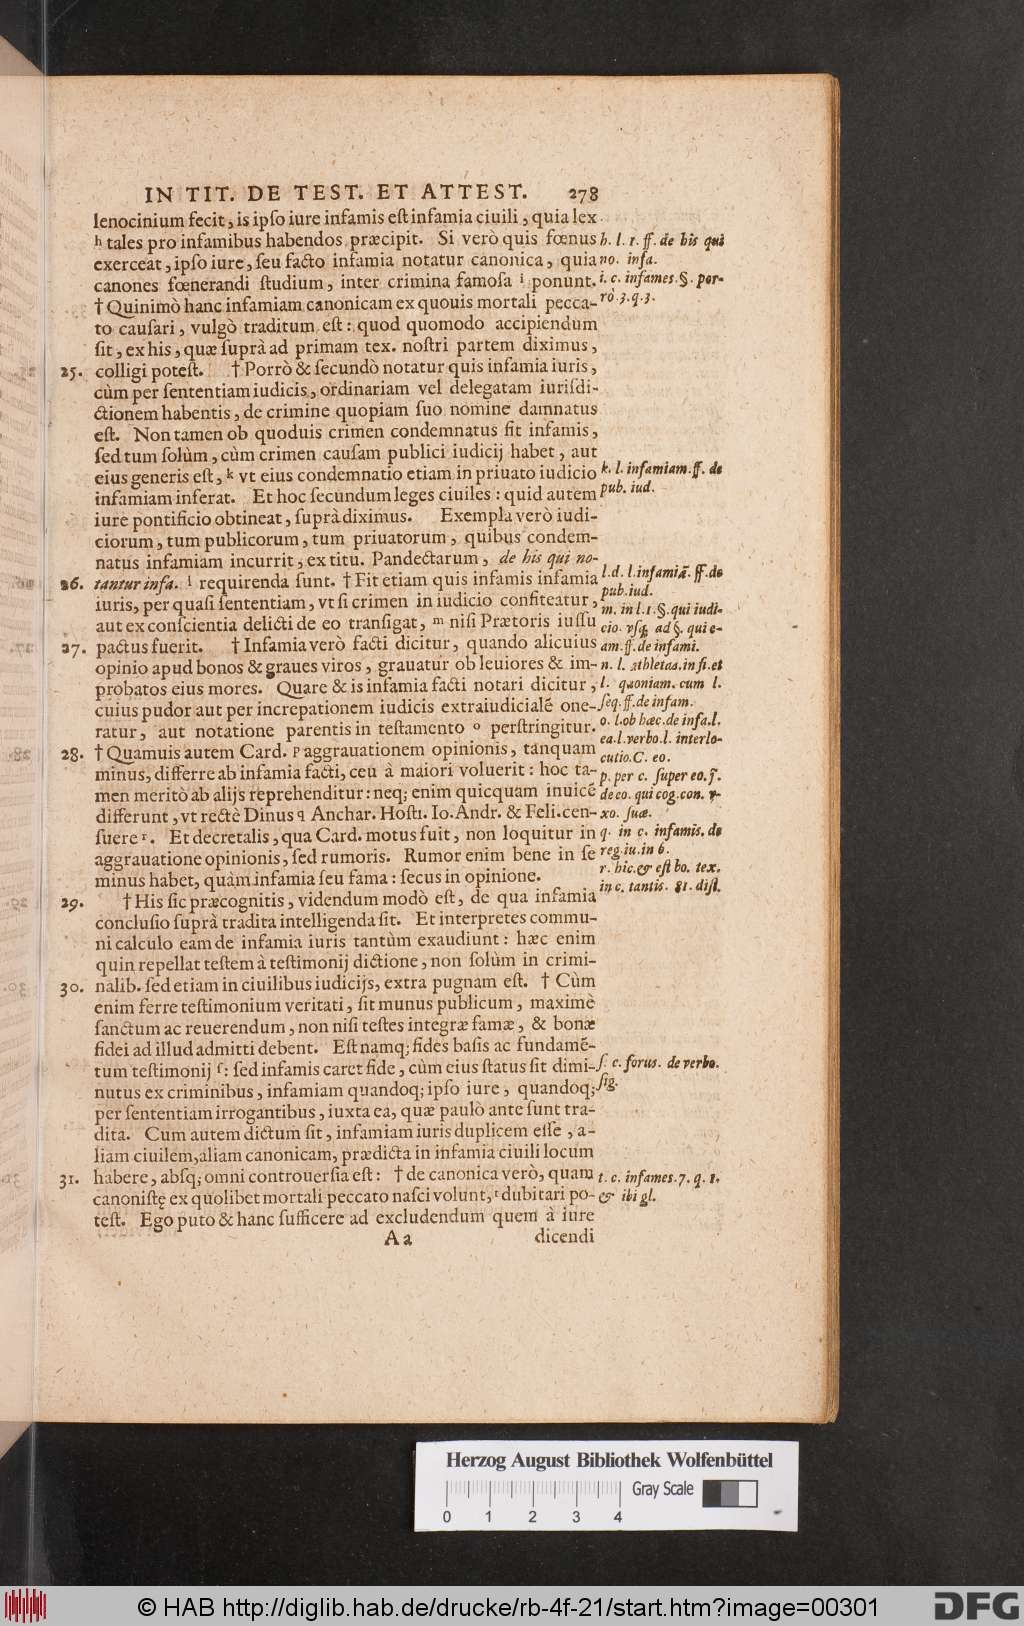 IN TIT. DE TEST. ET ATTEST. 278
lenocinium fecit, is ipſo iure infamis eſt infamia ciuili, quia lex
h tales pro infamibus habendos præcipit. Si verò quis fœnus
exerceat, ipſo iure, ſeu facto infamia notatur canonica, quia
canones fœnerandi ſtudium, inter crimina famoſa i ponunt.
† Quinimò hanc infamiam canonicam ex quouis mortali pecca-
to cauſari, vulgò traditum eſt: quod quomodo accipiendum
ſit, ex his, quæ ſuprà ad primam tex. noſtri partem diximus,
25. colligi poteſt. † Porrò & ſecundò notatur quis infamia iuris,
cùm per ſententiam iudicis, ordinariam vel delegatam iuriſdi-
ctionem habentis, de crimine quopiam ſuo nomine damnatus
eſt. Non tamen ob quoduis crimen condemnatus fit infamis,
ſed tum ſolùm, cùm crimen cauſam publici iudicij habet, aut
eius generis eſt, k vt eius condemnatio etiam in priuato iudicio
infamiam inferat. Et hoc ſecundum leges ciuiles: quid autem
iure pontificio obtineat, ſuprà diximus. Exempla verò iudi-
ciorum, tum publicorum, tum priuatorum, quibus condem-
natus infamiam incurrit, ex titu. Pandectarum, de his qui no-
26. tantur infa. l requirenda ſunt. † Fit etiam quis infamis infamia
iuris, per quaſi ſententiam, vt ſi crimen in iudicio confiteatur,
aut ex conſcientia delicti de eo tranſigat, m niſi Prætoris iuſſu
27. pactus fuerit. † Infamia verò facti dicitur, quando alicuius
opinio apud bonos & graues viros, grauatur ob leuiores & im-
probatos eius mores. Quare & is infamia facti notari dicitur,
cuius pudor aut per increpationem iudicis extraiudicialẽ one-
ratur, aut notatione parentis in teſtamento o perſtringitur.
28. † Quamuis autem Card. p aggrauationem opinionis, tanquam
minus, differre ab infamia facti, ceu à maiori voluerit: hoc ta-
men meritò ab alijs reprehenditur: neq; enim quicquam inuicẽ
differunt, vt rectè Dinus q Anchar. Hoſti. Io. Andr. & Feli. cen-
ſuere r. Et decretalis, qua Card. motus fuit, non loquitur in
aggrauatione opinionis, ſed rumoris. Rumor enim bene in ſe
minus habet, quàm infamia ſeu fama: ſecus in opinione.
29. † His ſic præcognitis, videndum modò eſt, de qua infamia
concluſio ſuprà tradita intelligenda ſit. Et interpretes commu-
ni calculo eam de infamia iuris tantùm exaudiunt: hæc enim
quin repellat teſtem à teſtimonij dictione, non ſolùm in crimi-
30. nalib. ſed etiam in ciuilibus iudicijs, extra pugnam eſt. † Cùm
enim ferre teſtimonium veritati, ſit munus publicum, maximè
ſanctum ac reuerendum, non niſi teſtes integræ famæ, & bonæ
fidei ad illud admitti debent. Eſt namq; fides baſis ac fundamẽ-
tum teſtimonij ſ: ſed infamis caret fide, cùm eius ſtatus ſit dimi-
nutus ex criminibus, infamiam quandoq; ipſo iure, quandoq;
per ſententiam irrogantibus, iuxta ea, quæ paulò ante ſunt tra-
dita. Cum autem dictum ſit, infamiam iuris duplicem eſſe, a-
liam ciuilem, aliam canonicam, prædicta in infamia ciuili locum
31. habere, abſq; omni controuerſia eſt: † de canonica verò, quam
canoniſtę ex quolibet mortali peccato naſci volunt, t dubitari po-
teſt. Ego puto & hanc ſufficere ad excludendum quem à iure
Aa dicendi
h. l. 1. ff. de his qui
no. infa.
i. c. infames. §. por-
rò. 3. q. 3.
k. l. infamiam. ff. de
pub. iud.
l. d. l. infamiã. ff. de
pub. iud.
m. in l. 1. §. qui iudi-
cio. vſq; ad §. qui e-
am. ff. de infami.
n. l. athletas. in fi. et
l. quoniam. cum l.
ſeq. ff. de infam.
o. l. ob hæc. de infa. l.
ea. l. verbo. l. interlo-
cutio. C. eo.
p. per c. ſuper eo. j̃.
de eo. qui cog. con. v-
xo. ſuæ.
q. in c. infamis. de
reg. iu. in 6.
r. hic. & eſt bo. tex.
in c. tantis. 81. diſt.
ſ. c. forus. de verbo.
ſig.
t. c. infames. 7. q. 1.
& ibi gl.
Herzog August Bibliothek Wolfenbüttel
Gray Scale
0 1 2 3 4
© HAB http://diglib.hab.de/drucke/rb-4f-21/start.htm?image=00301
DFG